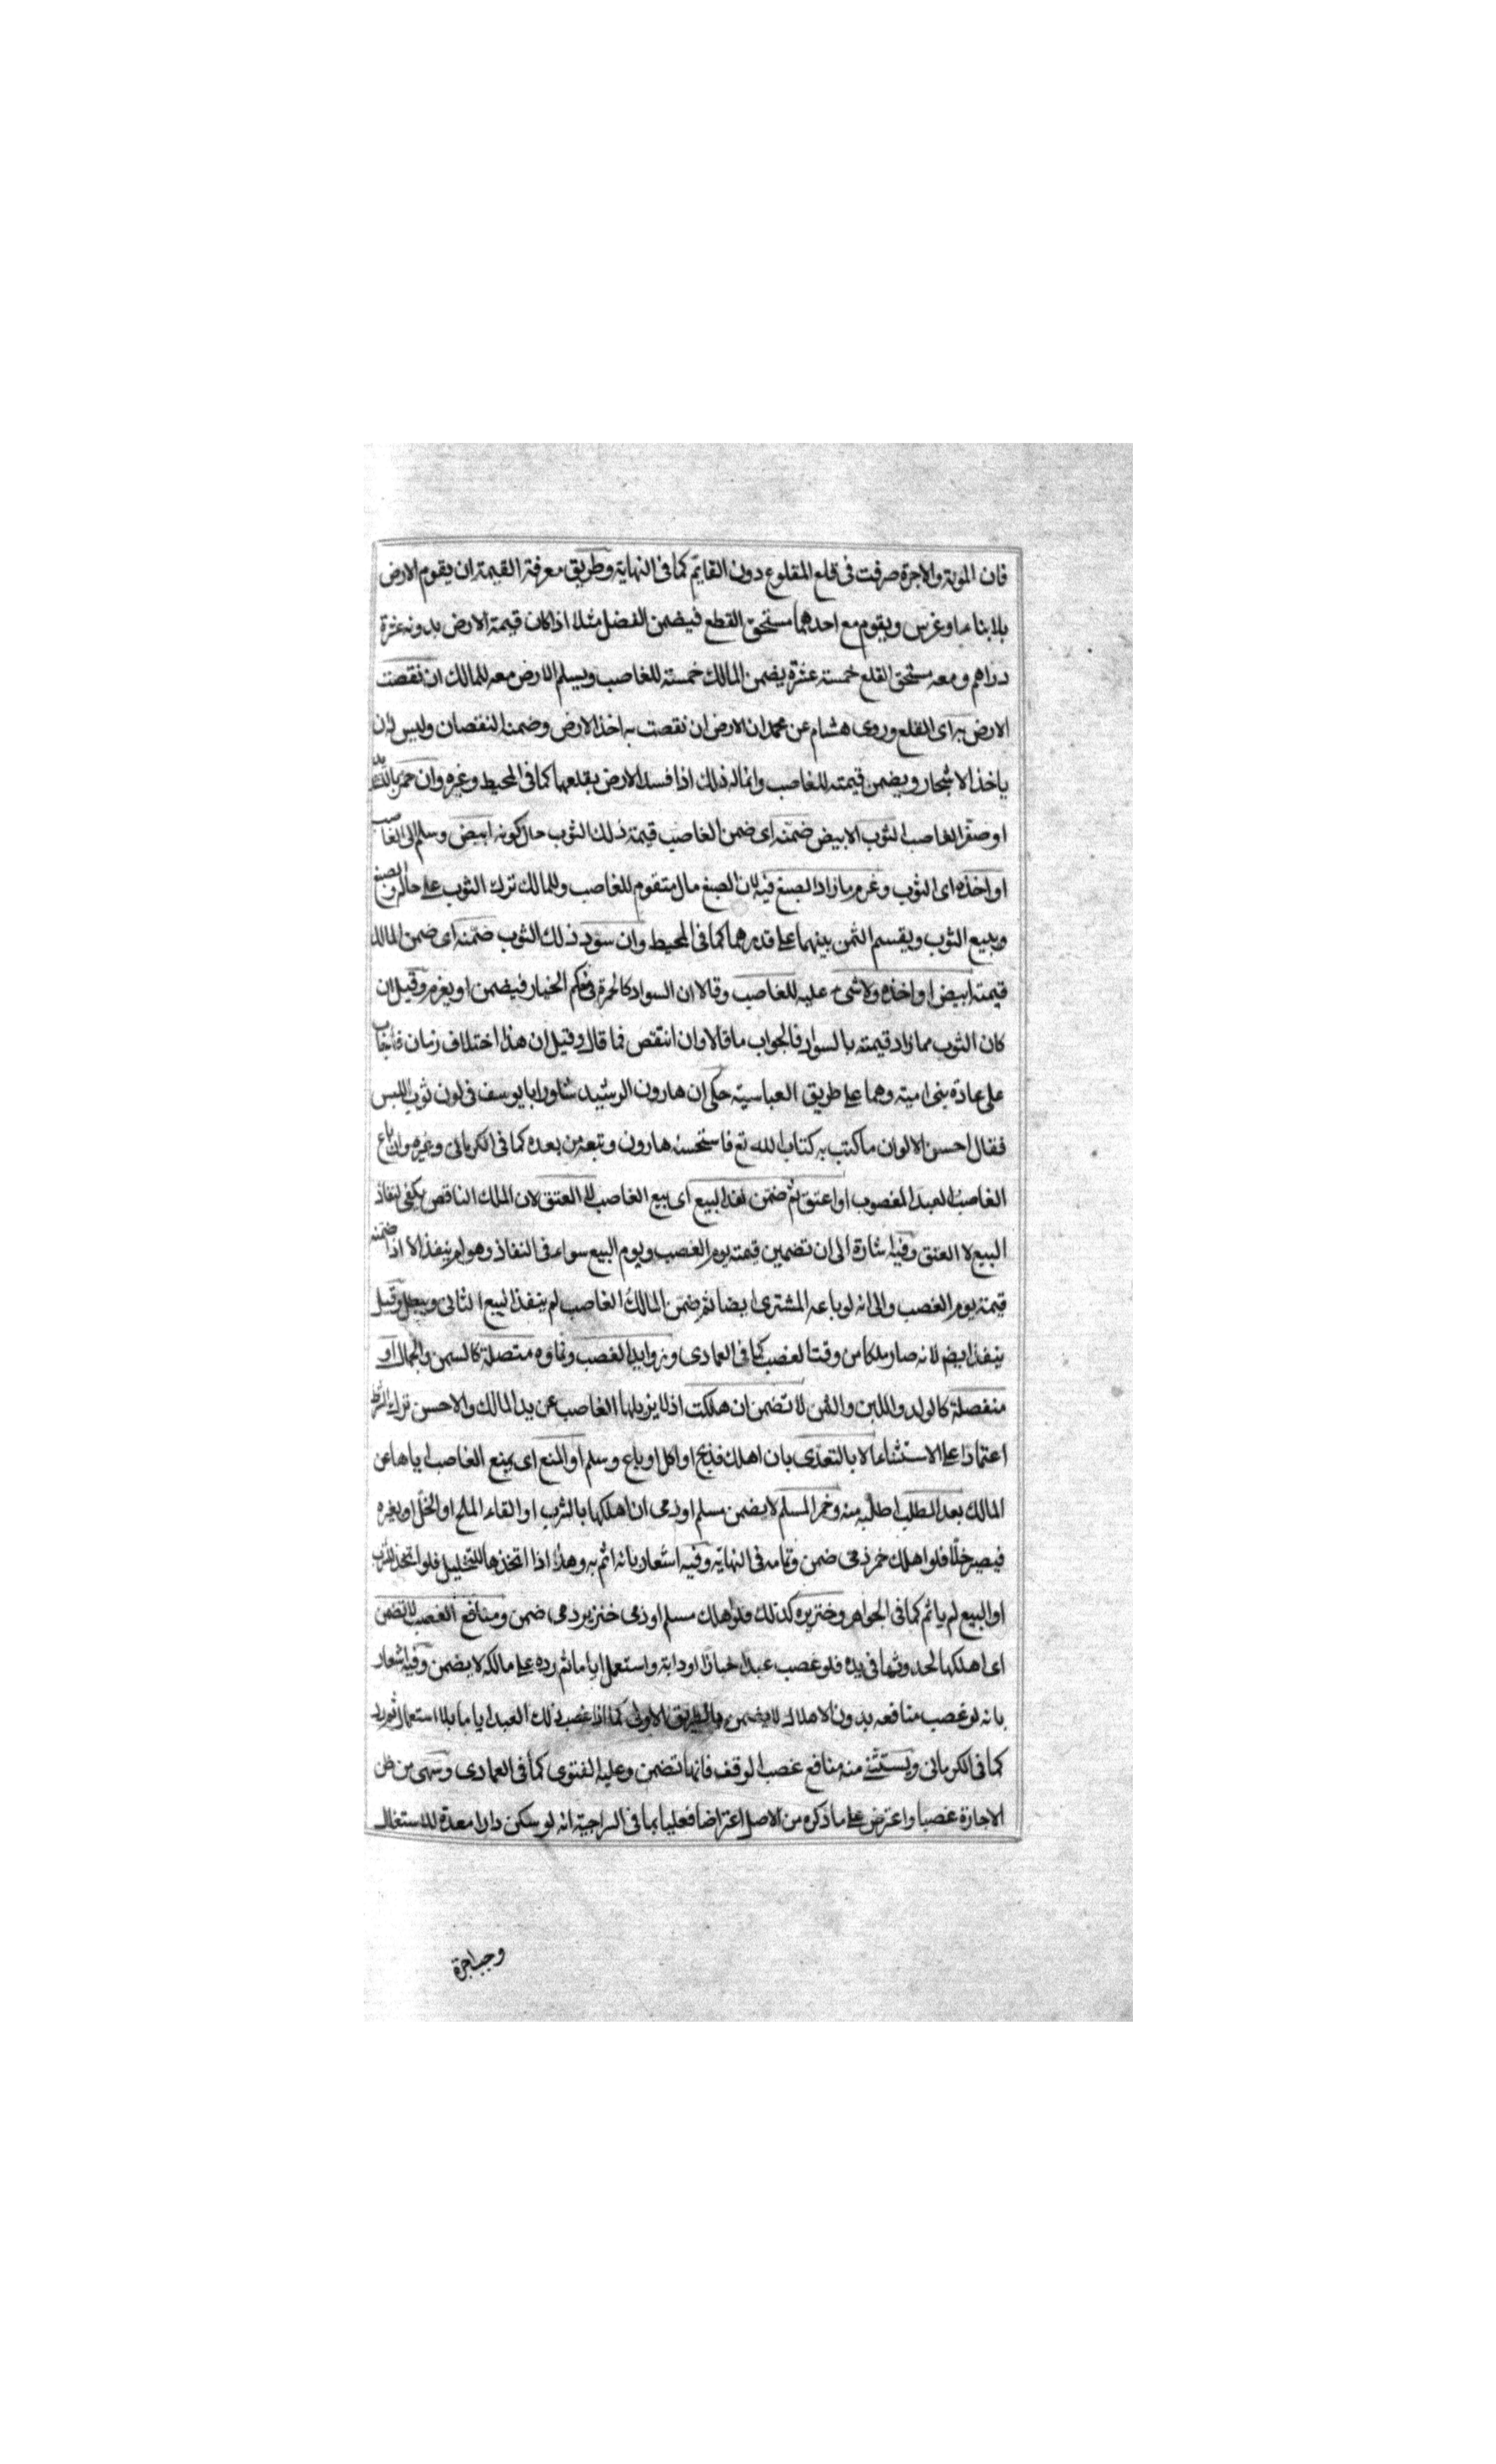 فان المونة والاجرة صرفت فى قلع المقلوع دون القايم كما فى النهاية وطريق معرفة القيمة ان يقوم الارض
بلا بناء او غرس ويقوم مع احدهما مستحق القطع فيضمن الفضل مثلا اذا كان قيمة الارض بدونه عشرة
دراهم ومعه مستحق القلع خمسة عشرة يضمن المالك خمسة للغاصب ويسلم الارض معه للمالك ان نقصت
الارض به اى القلع وروى هشام عن محمد ان الارض ان نقصت به اخذ الارض وضمن النقصان وليس له ان
ياخذ الاشجار ويضمن قيمته للغاصب وانما له ذلك اذا فسد الارض بقلعها كما فى المحيط وغيره وان حمر
او صفر الغاصب الثوب الابيض ضمنه اى ضمن الغاصب قيمة ذلك الثوب حال كونه ابيض وسلم الى الغاصب
او اخذه اى الثوب وغرم ما زاد الصبغ فيه لان الصبغ مال متقوم للغاصب وللمالك ترك الثوب على حاله والصبغ
ويبيع الثوب ويقسم الثمن بينهما على قدرهما كما فى المحيط وان سود ذلك الثوب ضمنه اى ضمن المالك
قيمته ابيض او اخذه ولا شىء عليه للغاصب وقالا ان السواد كالحمرة فى حكم الخيار فيضمن او يغرم وقيل ان
كان الثوب مما زاد قيمته بالسواد فالجواب ما قالا وان انتقص فما قال وقيل ان هذا اختلاف زمان فاجاب
على عادة بنى امية وهما على طريق العباسية حكى ان هارون الرشيد شاور ابا يوسف فى لون ثوب اللبس
فقال احسن الالوان ما كتب به كتاب الله تع فاستحسنه هارون وتبعه من بعده كما فى الكرمانى وغيره وان باع
الغاصب العبد المغصوب او اعتق ثم ضمن نفذ البيع اى بيع الغاصب لا العتق لان الملك الناقص يكفى لنفاذ
البيع لا العتق وفيه اشارة الى ان تضمين قيمته يوم الغصب ويوم البيع سواء فى النفاذ وهو لم ينفذ الا اذا ضمنه
قيمة يوم الغصب والى انه لو باعه المشترى ايضا ثم ضمن المالك الغاصب لم ينفذ البيع الثانى ويبطل وقيل
ينفذ ايضا لانه صار ملكا من وقت الغصب كما فى العمادى وزوايد الغصب ونماؤه متصلة كالسمن والجمال او
منفصلة كالولد واللبن والثمن لا تضمن ان هلكت اذ لا يزيلها الغاصب عن يد المالك والاحسن ترك الشرط
اعتمادا على الاستثناء الا بالتعدى بان اهلك فذبح او اكل او باع وسلم او المنع اى بمنع الغاصب اياها عن
المالك بعد الطلب اى طلبه منه وخمر المسلم لا يضمن مسلم او ذمى ان اهلكها بالشرب او القاء الملح او الخل او بغيره
فيصير خلا فلو اهلك خمر ذمى ضمن وتمامه فى النهاية وفيه اشعار بانه اثم به وهذا اذا اتخذها للتخليل فلو اتخذ للشرب
او البيع لم ياثم كما فى الجواهر وخنزيره كذلك فلو اهلك مسلم او ذمى خنزير ذمى ضمن ومنافع الغصب لا تضمن
اى اهلكها لحدوثها فى يده فلو غصب عبدا خبازا او دابة واستعمل اياما ثم رده على مالكه لا يضمن وفيه اشعار
بانه لو غصب منافعه بدون الاهلاك لا يضمن بالطريق الاولى كما اذا غصب ذلك العبد اياما بلا استعمال ثم رده
كما فى الكرمانى ويستثنى منه منافع غصب الوقف فانها تضمن وعليه الفتوى كما فى العمادى وسهى من ظن
الاجارة غصبا واعترض على ما ذكره من الاصل اعتراضا فعليا بما فى السراجية انه لو سكن دارا معدة للاستغلال
وجب اجرة